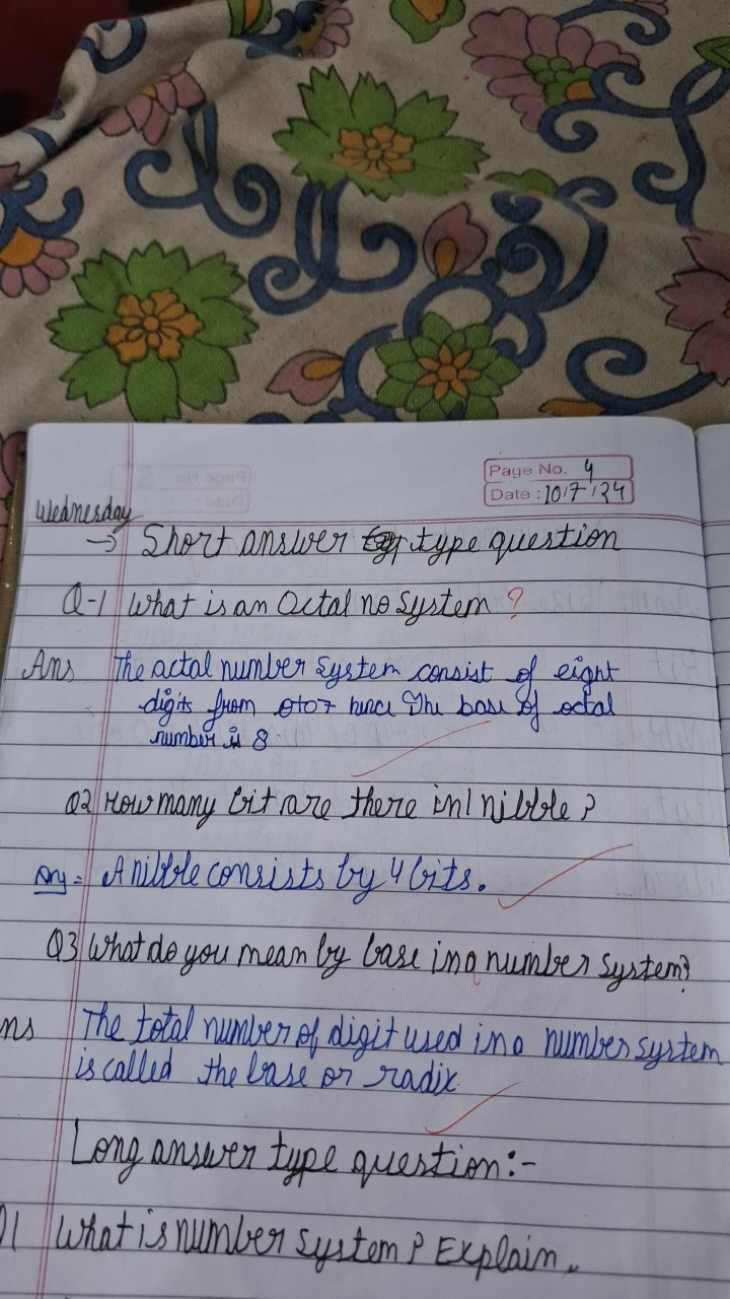 Page No. 4
Date : 10/7/24
Wednesday
→ Short answer type question
Q-1 What is an Octal no System ?
Ans The actal number System consist of eight
digits from 0to7 hence The base of octal
number is 8
Q2 How many bit are there in 1 nibble ?
Ans = A nibble consists by 4 bits.
Q3 What do you mean by base in a number system?
ns The total number of digit used in a number system
is called the base or radix
Long answer type question :-
Q1 What is number system ? Explain.